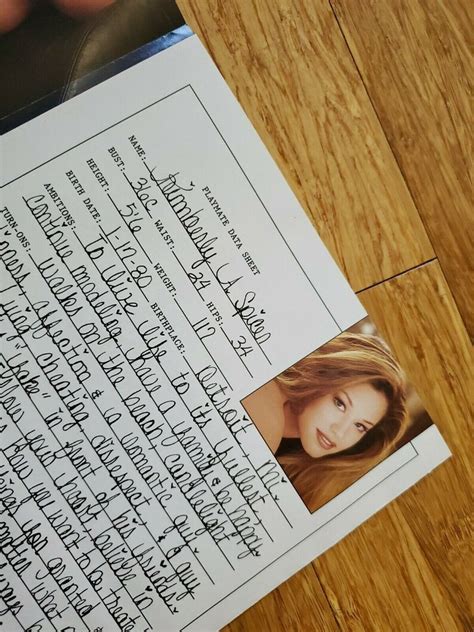 PLAYMATE DATA SHEET
NAME: Kimberly A Spicer
BUST: 36C WAIST: 24 HIPS: 34
HEIGHT: 5'6 WEIGHT: 110
BIRTH DATE: 1-12-80 BIRTHPLACE: Detroit, Mi
AMBITIONS: To live life to its fullest
continue modeling, have a family & be happy
TURN-ONS: walks on the beach, candlelight
affection & a romantic guy
cheating, disrespect & guy
"fake" in front of his friends
your heart, believe in
how you want to be treate
you granted
matter what